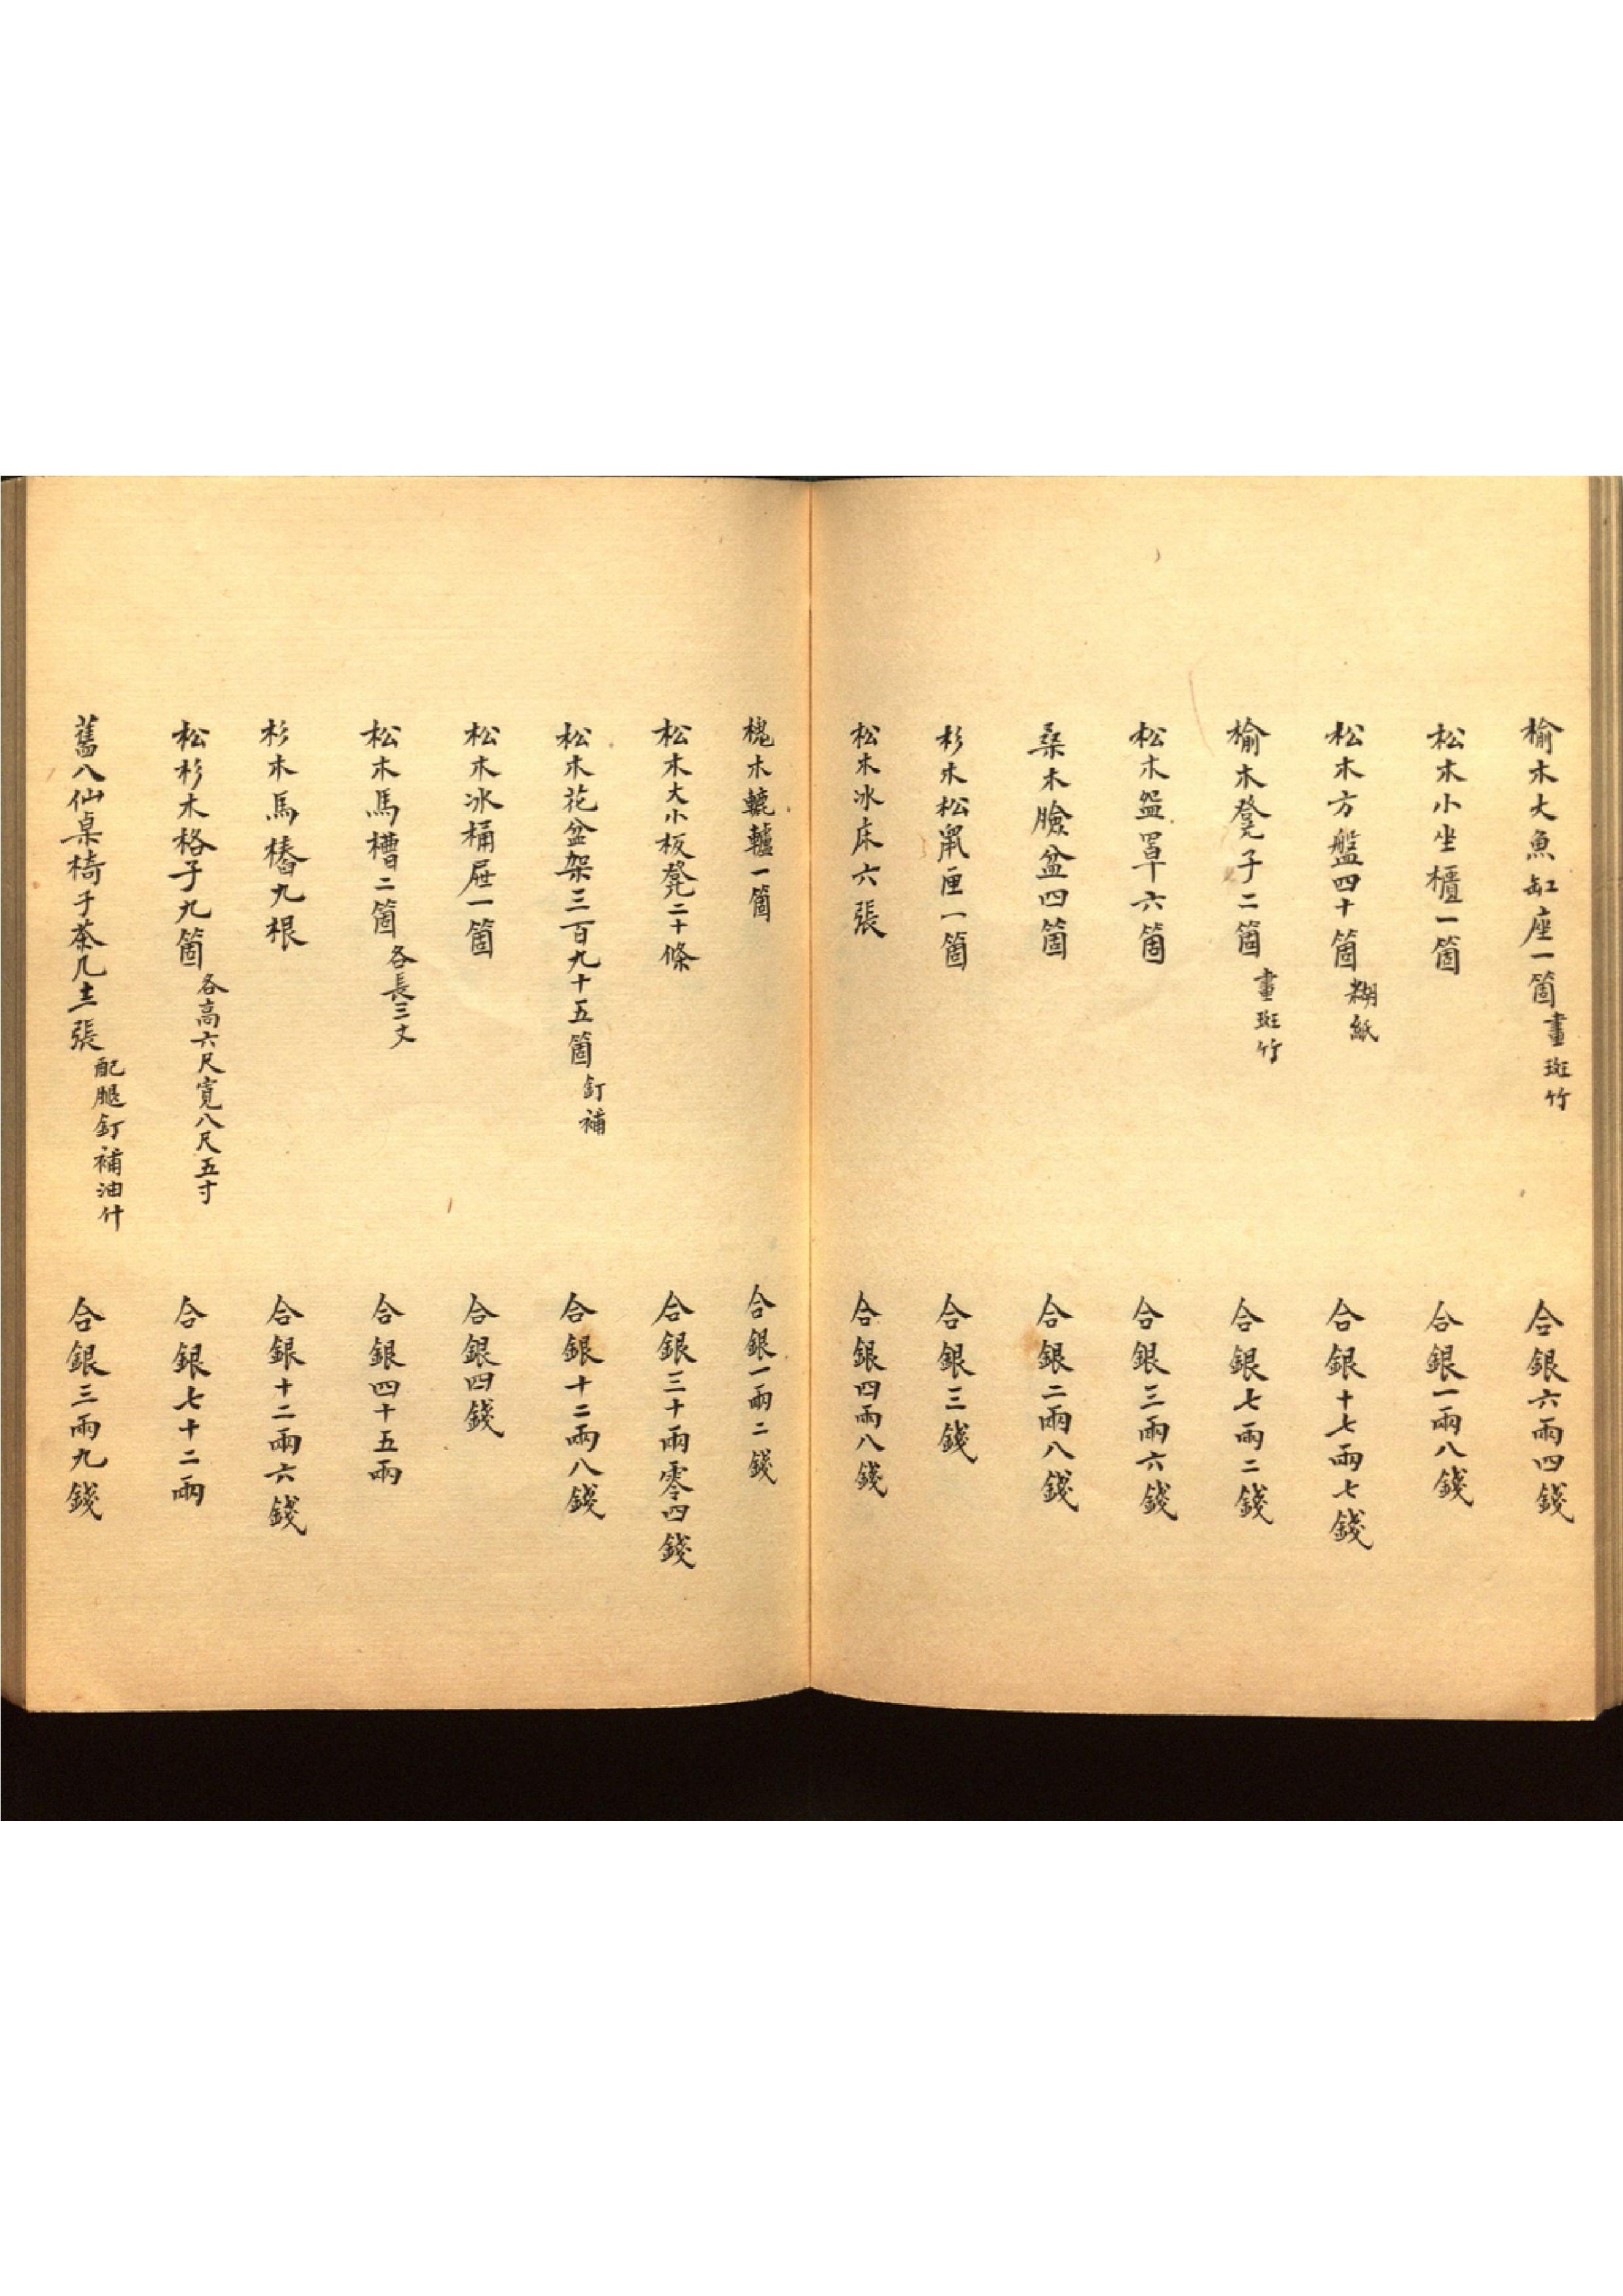 榆木大魚缸座一箇畫斑竹 合銀六兩四錢
松木小坐櫃一箇 合銀一兩八錢
松木方盤四十箇糊紙 合銀十七兩七錢
榆木凳子二箇畫斑竹 合銀七兩二錢
松木盌罩六箇 合銀三兩六錢
桑木臉盆四箇 合銀二兩八錢
杉木松鼠匣一箇 合銀三錢
松木冰床六張 合銀四兩八錢
槐木轆轤一箇 合銀一兩二錢
松木大小板凳二十條 合銀三十兩零四錢
松木花盆架三百九十五箇釘補 合銀十二兩八錢
松木冰桶屜一箇 合銀四錢
松木馬槽二箇各長三丈 合銀四十五兩
杉木馬樁九根 合銀十二兩六錢
松杉木格子九箇各高六尺寬八尺五寸 合銀七十二兩
舊八仙桌椅子茶几十三張配腿釘補油什 合銀三兩九錢